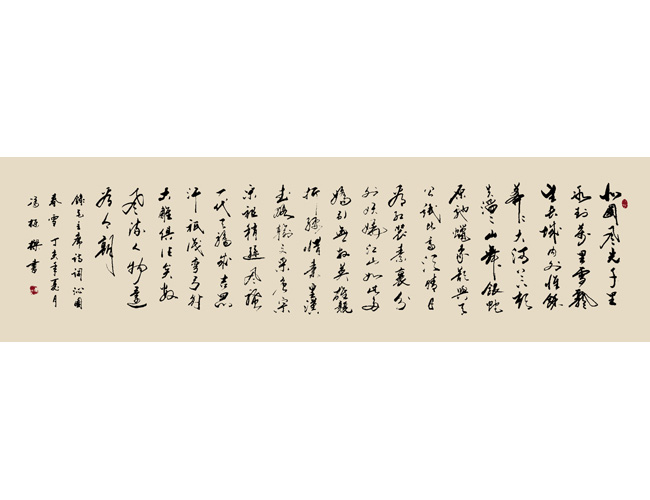 北國風光千里
冰封萬里雪飄
望長城內外惟餘
莽々大河上下頓
失滔々山舞銀蛇
原馳蠟象欲與天
公試比高須晴日
看紅裝素裹分
外妖嬈江山如此多
嬌引無數英雄競
折腰惜秦皇漢
武略輸文采唐宗
宋祖稍遜風騷
一代天驕成吉思
汗祇識彎弓射
大雕俱往矣數
風流人物還
看今朝
錄毛主席詩詞沁園
春雪丁亥年夏月
馮書